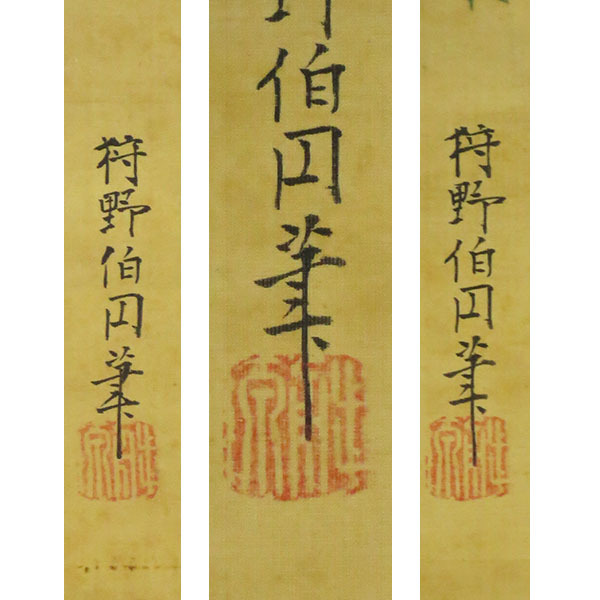 狩野伯円筆
伯円筆
狩野伯円筆